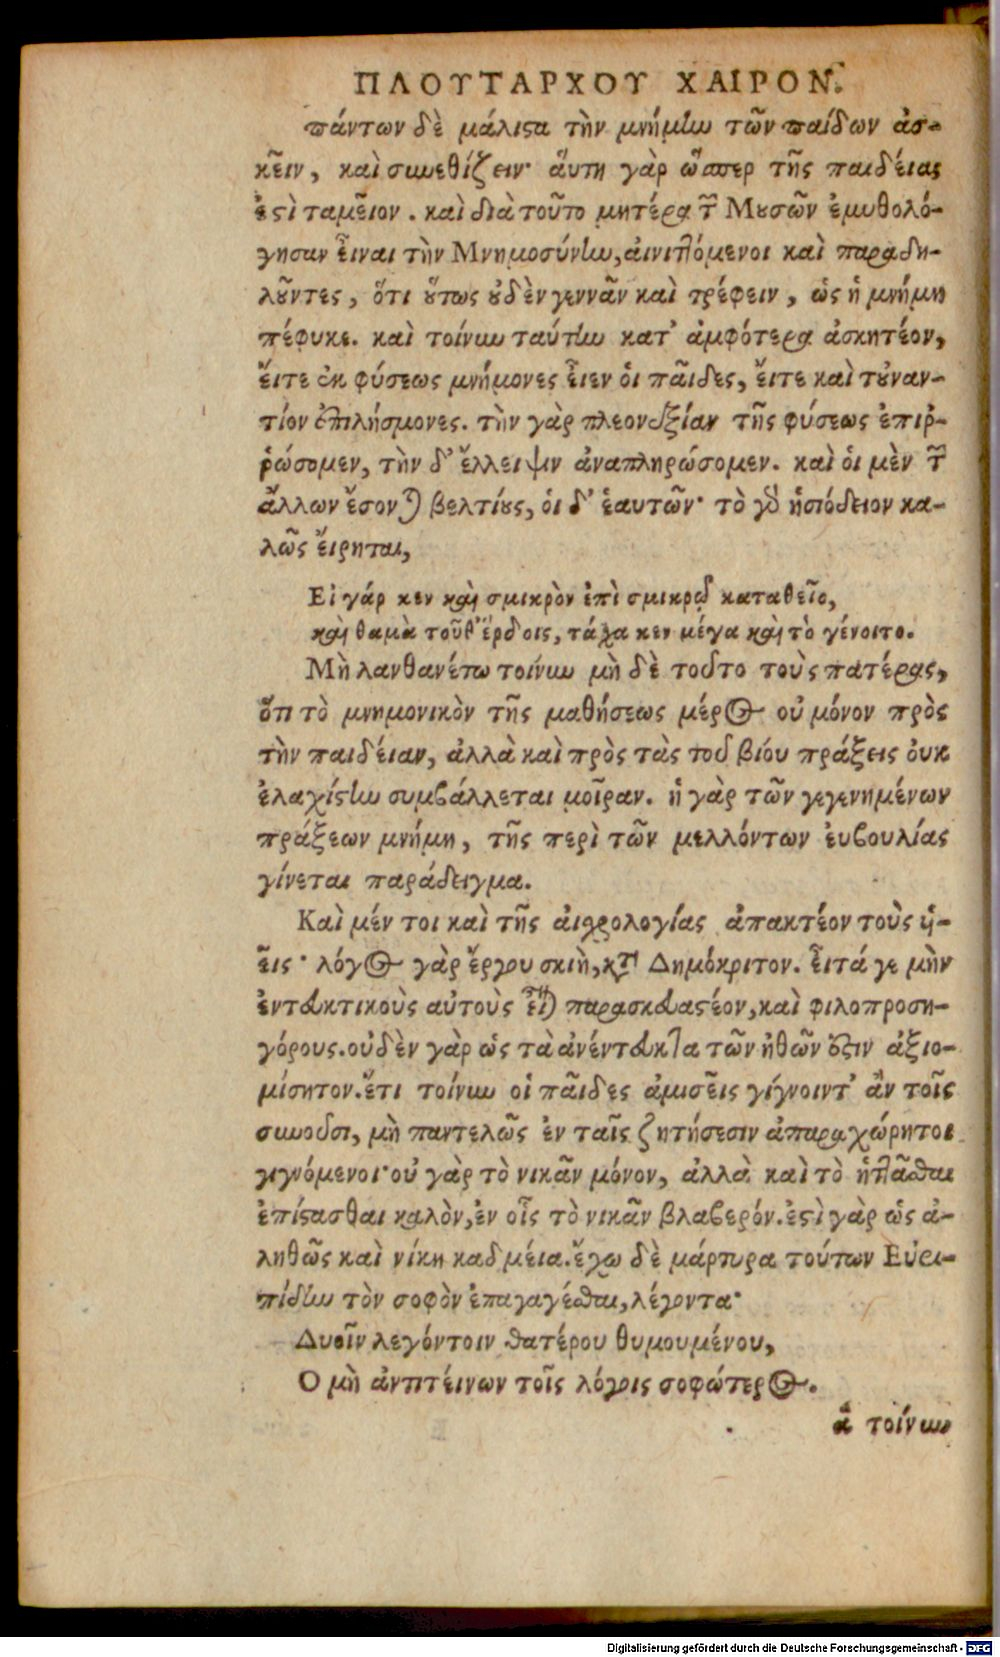 ΠΛΟΥΤΑΡΧΟΥ ΧΑΙΡΟΝ.
πάντων δὲ μάλιςα τὴν μνήμἰω τῶν παίδων ἀσ-
κεῖν, καὶ σιωεθίζειν· ἅυτη γὰρ ὥασπερ τῆς παιδέιας
ἐςὶ ταμεῖον. καὶ διὰ τοῦτο μητέρα τῶν Μουσῶν ἐμυθολό-
γησαν εἶιναι τὴν Μνημοσύνἰω, ἀινιτλόμενοι καὶ παραδη-
λοῦντες, ὅτι ὅυτως ὀυδὲν γεννᾶν καὶ τρέφειν, ὡς ἡ μνήμη
πέφυκε. καὶ τοίνιω ταύτἰω κατ' ἀμφότερα ἀσκητέον,
ἔιτε ἐκ φύσεως μνήμονες εἶιεν ὁι παῖδες, ἔιτε καὶ τοὐναν-
τίον ἐπιλήσμονες. τὴν γὰρ πλεονεξίαν τῆς φύσεως ἐπιῤ-
ῥώσομεν, τὴν δ' ἔλλειψιν ἀναπληρώσομεν. καὶ ὁι μὲν τῶν
ἄλλων ἔσονται βελτίους, ὁι δ' ἑαυτῶν· τὸ γὰρ ἡσιόδειον κα-
λῶς ἔιρηται,
Εἰ γάρ κεν καὶ σμικρὸν ἐπὶ σμικρῷ καταθεῖο,
καὶ θαμὰ τοῦθ' ἔρδοις, τάχα κεν μέγα καὶ τὸ γένοιτο.
Μὴ λανθανέτω τοίνιω μὴ δὲ τοῦτο τοὺς πατέρας,
ὅτι τὸ μνημονικὸν τῆς μαθήσεως μέρος οὐ μόνον πρὸς
τὴν παιδέιαν, ἀλλὰ καὶ πρὸς τὰς τοῦ βίου πράξεις ὀυκ
ἐλαχίςἰω συμβάλλεται μοῖραν. ἡ γὰρ τῶν γεγενημένων
πράξεων μνήμη, τῆς περὶ τῶν μελλόντων ἐυβουλίας
γίνεται παράδειγμα.
Καὶ μέν τοι καὶ τῆς ἀισχρολογίας ἀπακτέον τοὺς ὑι-
εῖς· λόγος γὰρ ἔργου σκιὴ, κτ Δημόκριτον. εἶιτά γε μὴν
ἐντευκτικοὺς αὐτοὺς εἶναι παρασκευαςέον, καὶ φιλοπροση-
γόρους. οὐδὲν γὰρ ὡς τὰ ἀνέντευκτα τῶν ἠθῶν ὅςιν ἀξιο-
μίσητον. ἔτι τοίνιω οἱ παῖδες ἀμισεῖς γίγνοιντ' ἂν τοῖς
σιωοῦσι, μὴ παντελῶς ἐν ταῖς ζητήσεσιν ἀπαραχώρητοι
γιγνόμενοι· οὐ γὰρ τὸ νικᾶν μόνον, ἀλλὰ καὶ τὸ ἡτλᾶσθαι
ἐπίςασθαι καλὸν, ἐν οἷς τὸ νικᾶν βλαβερόν. ἐςὶ γὰρ ὡς ἀ-
ληθῶς καὶ νίκη καδμέια. ἔχω δὲ μάρτυρα τούτων Εὐρι-
πίδἰω τὸν σοφὸν ἐπαγαγέσθαι, λέγοντα·
Δυοῖν λεγόντοιν θατέρου θυμουμένου,
Ο μὴ ἀντιτέινων τοῖς λόγοις σοφώτερος.
ἃ τοίνιω
Digitalisierung gefördert durch die Deutsche Forschungsgemeinschaft - DFG